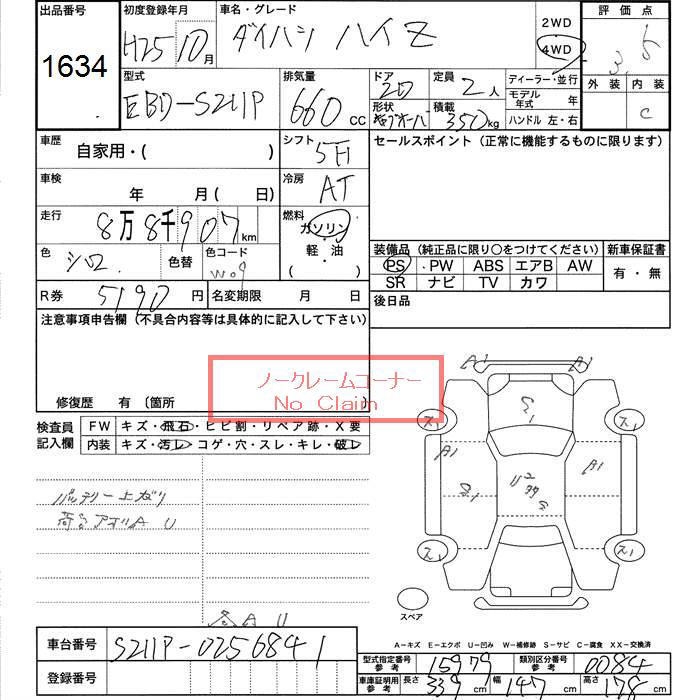 出品番号 初度登録年月 車名・グレード 評価点
1634 H25 10月 ダイハツ ハイゼ 2WD 4WD 3.5
外装 内装
C
型式 排気量 ドア 定員 ディーラー・並行
EBD-S211P 660cc 2D 2人 モデル年式 年
形状 積載 350kg ハンドル 左・右
車歴 シフト セールスポイント（正常に機能するものに限ります）
自家用・( ) 5F
車検 冷房
年 月( 日) AT
走行 燃料
8万8千907km ガソリン
色 色替 色コード 軽・油
シロ W09 ( )
装備品（純正品に限り○をつけてください） 新車保証書
PS ・PW ABS エアB AW 有・無
SR ナビ TV カワ
R券 5190円 名変期限 月 日 後日品
注意事項申告欄（不具合内容等は具体的に記入して下さい）
ノークレームコーナー
No Claim
修復歴 有〔箇所
検査員記入欄 FW キズ・飛石・ヒビ割・リペア跡・X要
内装 キズ・汚レ・コゲ・穴・スレ・キレ・破レ
A1 A1
ス1 ス1
A1 A1
ス1 ス1
バッテリー上ガリ
荷台アオリA U
A U
スペア
A-キズ E-エクボ U-凹み W-補修跡 S-サビ C-腐食 XX-交換済
車台番号 S211P-0256841
型式指定番号 参考 15979 類別区分番号 参考 0084
登録番号
車庫証明用 参考 長さ 339cm 幅 147cm 高さ 178cm